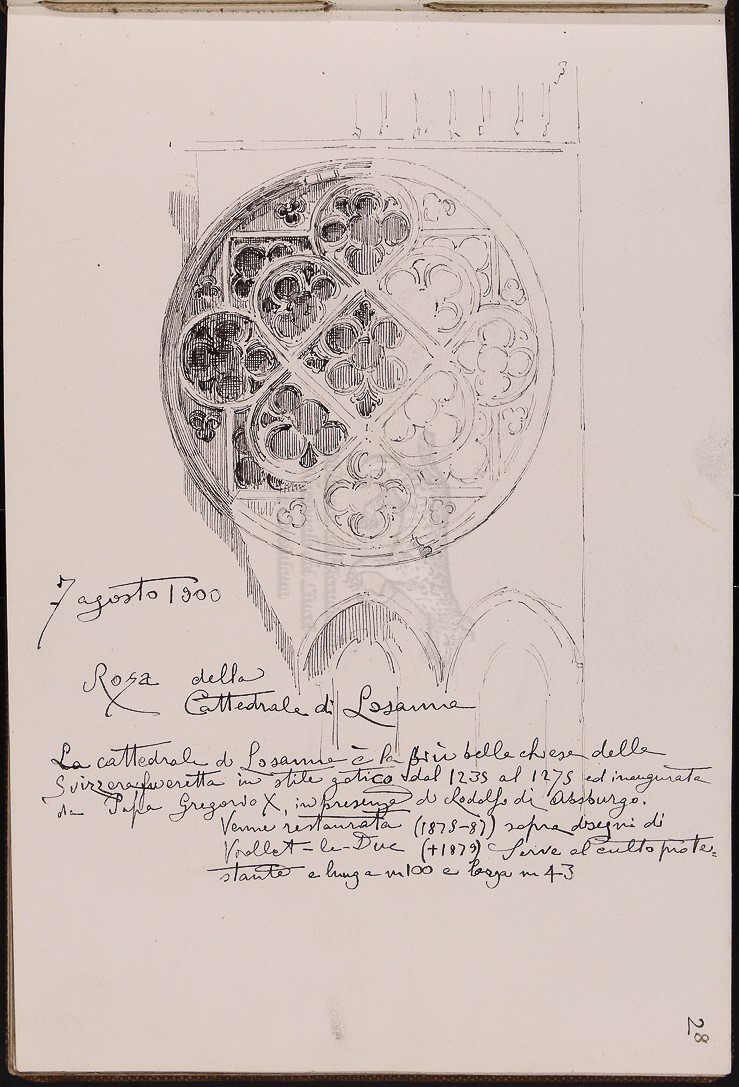 7 agosto 1900
Rosa della
Cattedrale di Losanna
La cattedrale di Losanna è la più bella chiesa della
Svizzera fu eretta in stile gotico dal 1235 al 1275 ed inaugurata
da Papa Gregorio X, in presenza di Rodolfo di Absburgo.
Venne restaurata (1875-87) sopra disegni di
Viollet-le-Duc (+1879) Serve al culto prote=
stante e lunga m 100 e larga m 43
28